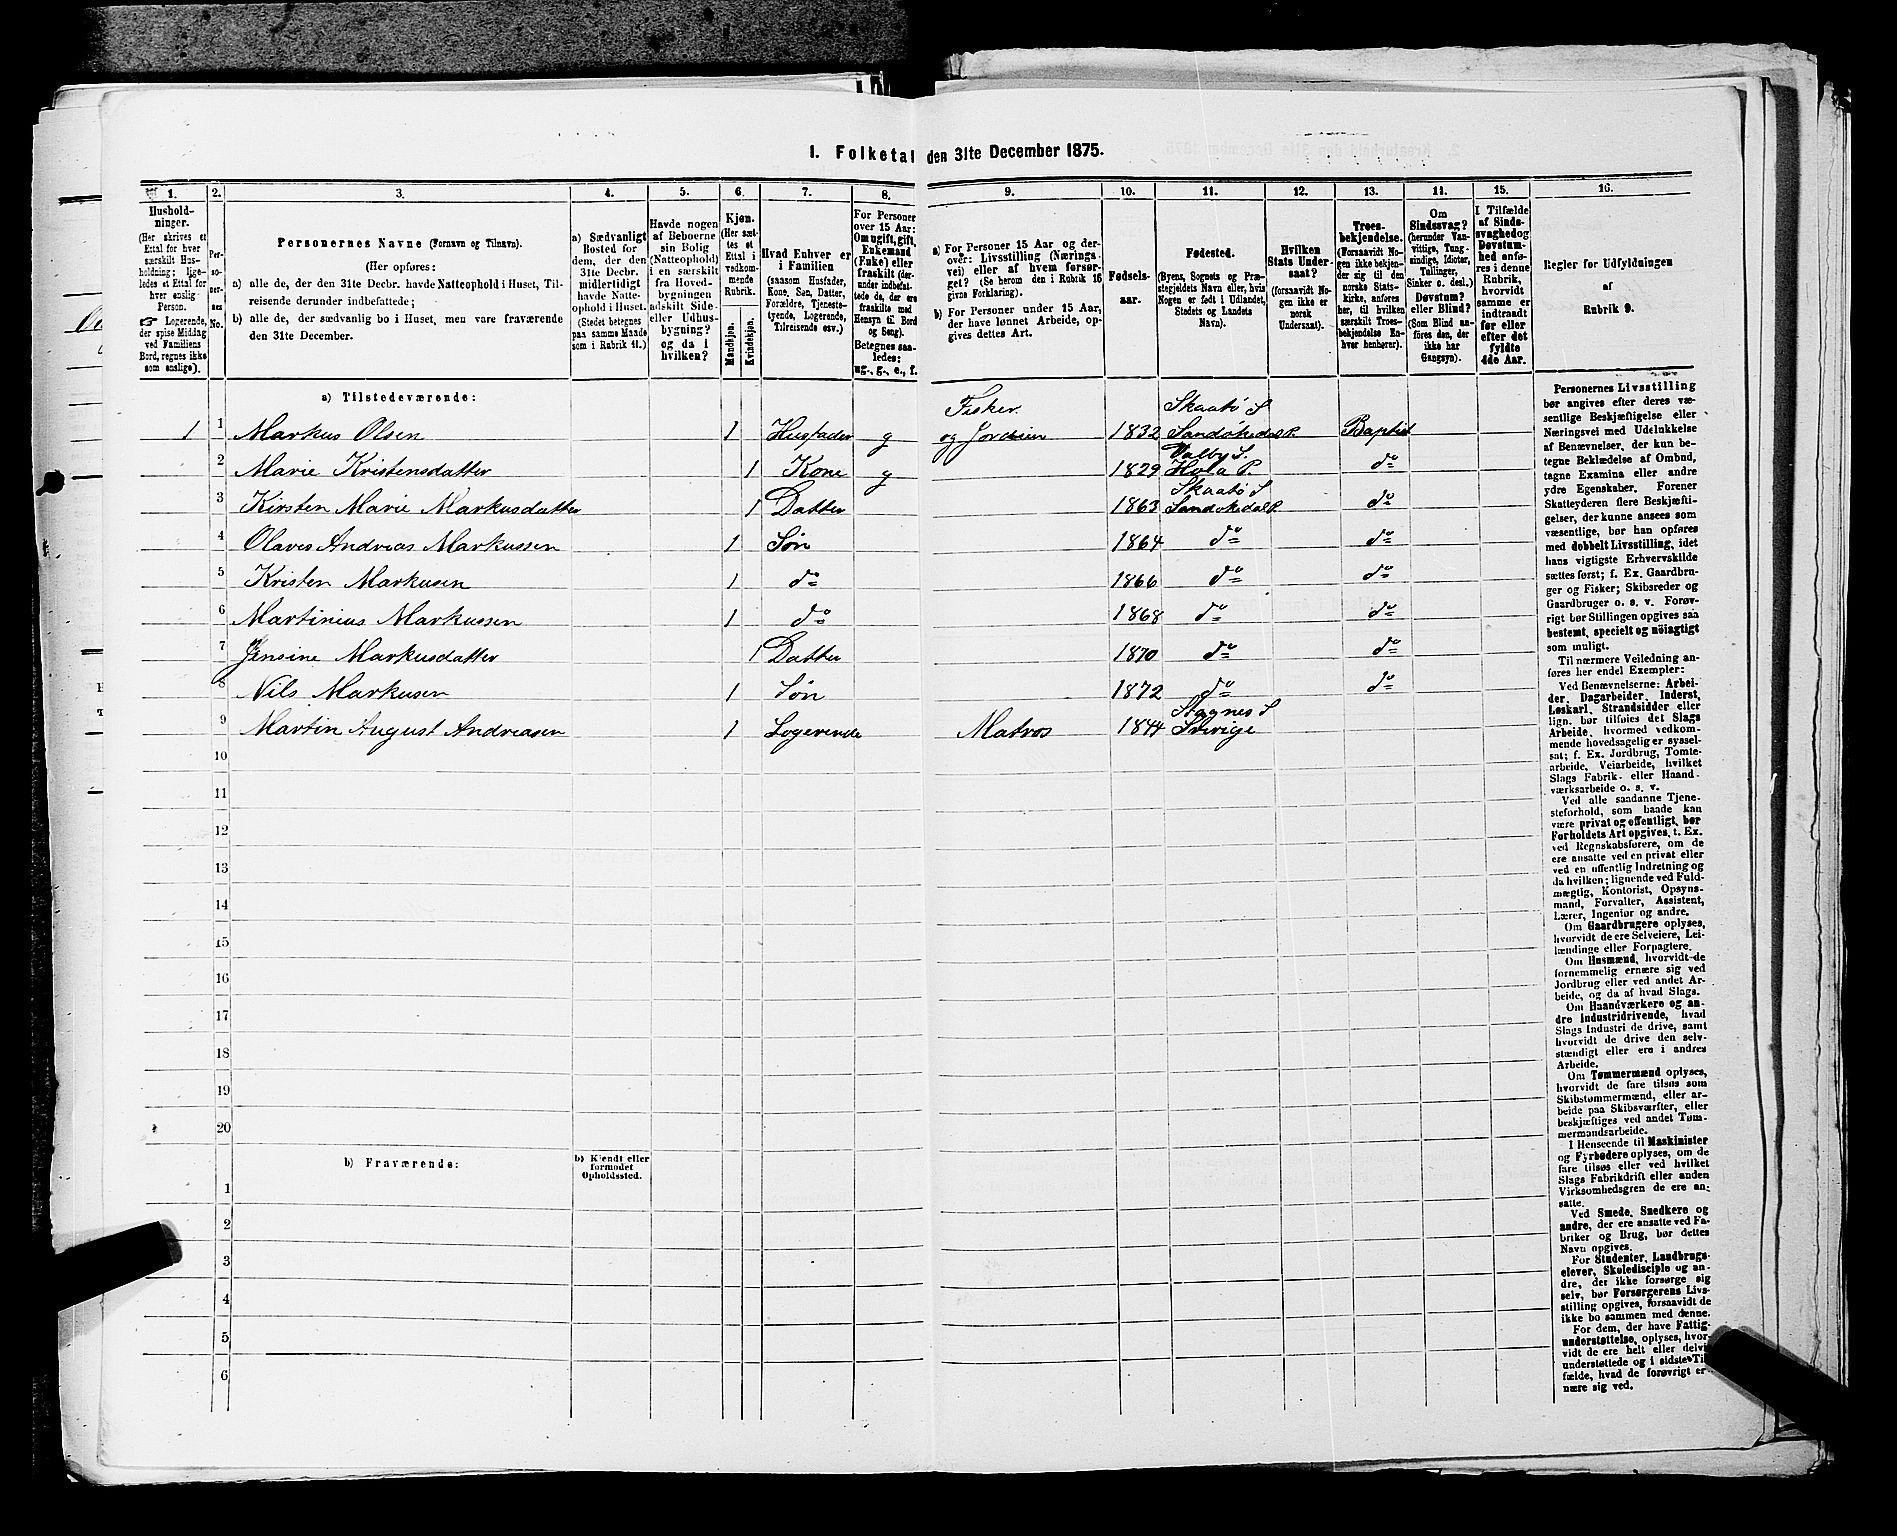 1. Folketal den 31te December 1875.
1.
2.
3.
4.
5.
6.
7.
8.
9.
10.
11.
12.
13.
14.
15.
16.
Hushold-
ninger.
(Her skrives et
Ettal for hver
særskilt Hus-
holdning; lige-
ledes et Ettal for
hver enslig
Person.
☞ Logerende,
der spise Middag
ved Familiens
Bord, regnes ikke
som enslige).
Per-
so-
ner-
nes
No.
Personernes Navne (Fornavn og Tilnavn).
(Her opføres:
a) alle de, der den 31te Decbr. havde Natteophold i Huset, Til-
reisende derunder indbefattede;
b) alle de, der sædvanlig bo i Huset, men vare fraværende
den 31te December.
a) Sædvanligt
Bosted for
dem, der den
31te Decbr.
midlertidigt
havde Natte-
ophold i Huset.
(Stedet betegnes
paa samme Maade
som i Rubrik 11.)
Havde nogen
af Beboerne
sin Bolig
(Natteophold)
i en særskilt
fra Hoved-
bygningen
adskilt Side-
eller Udhus-
bygning?
og da i
hvilken?
Kjøn.
(Her sæt-
tes et
Ettal i
vedkom-
mende
Rubrik.
Mandkjøn.
Kvindekjøn.
Hvad Enhver er
i Familien
(saasom Husfader,
Kone, Søn, Datter,
Forældre, Tjeneste-
tyende, Logerende,
Tilreisende osv.)
For Personer
over 15 Aar:
Om ugift, gift,
Enkemand
(Enke) eller
fraskilt (der-
under indbefat-
tede de, der ere
fraskilte med
Hensyn til Bord
og Seng).
Betegnes saa-
ledes:
ug., g., e., f.
a) For Personer 15 Aar og der-
over: Livsstilling (Nærings-
vei) eller af hvem forsør-
get? (Se herom den i Rubrik 16
givne Forklaring).
b) For Personer under 15 Aar,
der have lønnet Arbeide, op-
gives dettes Art.
Fødsels-
aar.
Fødested.
(Byens, Sognets og Præ-
stegjeldets Navn eller, hvis
Nogen er født i Udlandet,
Stedets og Landets
Navn).
Hvilken
Stats Under-
saat?
(forsaavidt No-
gen ikke er
norsk
Undersaat).
Troes-
bekjendelse.
(Forsaavidt No-
gen ikke bekjen-
der sig til den
norske Stats-
kirke, anføres
her, til hvilken
særskilt Troes-
bekjendelse En-
hver henhører).
Om
Sindssvag?
(herunder Van-
vittige, Tung-
sindige, Idioter,
Tullinger,
Sinker o. desl.)
Døvstum?
eller Blind?
(Som Blind an-
føres den, der
ikke har
Gangsyn).
I Tilfælde
af Sinds-
svaghed og
Døvstum-
hed anfø-
res i denne
Rubrik,
hvorvidt
samme er
indtraadt
før eller
efter det
fyldte
4de Aar.
Regler for Udfyldningen
af
Rubrik 9.
a) Tilstedeværende:
1 1 Markus Olsen 1 Husfader g Fisker og Jordeier 1832 Skaatø S Sandøkedal P. Baptist
2 Marie Kristensdatter 1 Kone g 1829 Valby S. Hola P. do
3 Kirsten Marie Markusdatter 1 Datter 1863 Skaatø S Sandøkedal P. do
4 Olaves Andreas Markussen 1 Søn 1864 do do
5 Kristen Markusen 1 do 1866 do do
6 Martinius Markussen 1 do 1868 do do
7 Jensine Markusdatter 1 Datter 1870 do do
8 Nils Markusen 1 Søn 1872 do do
9 Martin August Andreasen 1 Logerende Matros 1844 Stagnes S Sverige
10
11
12
13
14
15
16
17
18
19
20
b) Fraværende:
b) Kjendt eller
formodet
Opholdssted.
1
2
3
4
5
6
Personernes Livsstilling
bør angives efter deres væ-
sentlige Beskjæftigelse eller
Næringsvei med Udelukkelse
af Benævnelser, der kun be-
tegne Beklædelse af Ombud,
tagne Examina eller andre
ydre Egenskaber. Forener
Skatteyderen flere Beskjæfti-
gelser, der kunne ansees som
væsentlige, bør han opføres
med dobbelt Livsstilling, idet
hans vigtigste Erhvervskilde
sættes først; f. Ex. Gaardbru-
ger og Fisker; Skibsreder og
Gaardbruger o. s. v. Forøv-
rigt bør Stillingen opgives saa
bestemt, specielt og nøiagtigt
som muligt.
Til nærmere Veiledning an-
føres her endel Exempler:
Ved Benævnelserne: Arbei-
der, Dagarbeider, Inderst,
Løskarl, Strandsidder eller
lign. bør tilføies det Slags
Arbeide, hvormed vedkom-
mende hovedsagelig er syssel-
sat; f. Ex. Jordbrug, Tomte-
arbeide, Veiarbeide, hvilket
Slags Fabrik- eller Haand-
værksarbeide o. s. v.
Ved alle saadanne Tjene-
steforhold, som baade kan
være privat og offentligt, bør
Forholdets Art opgives, t. Ex.
ved Regnskabsførere, om de
ere ansatte ved en privat eller
ved en offentlig Indretning og
da hvilken; lignende ved Fuld-
mægtig, Kontorist, Opsyns-
mand, Forvalter, Assistent,
Lærer, Ingeniør og andre.
Om Gaardbrugere oplyses,
hvorvidt de ere Selveiere, Lei-
lændinge eller Forpagtere.
Om Husmænd, hvorvidt de
fornemmelig ernære sig ved
Jordbrug eller ved andet Ar-
beide, og da af hvad Slags.
Om Haandværkere og an-
dre Industridrivende, hvad
Slags Industri de drive, samt
hvorvidt de drive den selv-
stændigt eller ere i andres
Arbeide.
Om Tømmermænd oplyses,
hvorvidt de fare tilsøs som
Skibstømmermænd, eller ar-
beide paa Skibsværfter, eller
beskjæftiges ved andet Tøm-
mermandsarbeide.
I Henseende til Maskinister
og Fyrbødere oplyses, om de
fare tilsøs eller ved hvilket
Slags Fabrikdrift eller anden
Virksomhedsgren de ere an-
satte.
Ved Smede, Snedkere og
andre, der ere ansatte ved Fa-
briker og Brug, bør dettes
Navn opgives.
For Studenter, Landbrugs-
elever, Skoledisciple og an-
dre, der ikke forsørge sig
selv, bør Forsørgerens Livs-
stilling opgives, forsaavidt de
ikke bo sammen med denne.
For dem, der have Fattig-
understøttelse, oplyses, hvor-
vidt de ere helt eller delvis
understøttede og i sidste Til-
fælde, hvad de forøvrigt er-
nære sig ved.